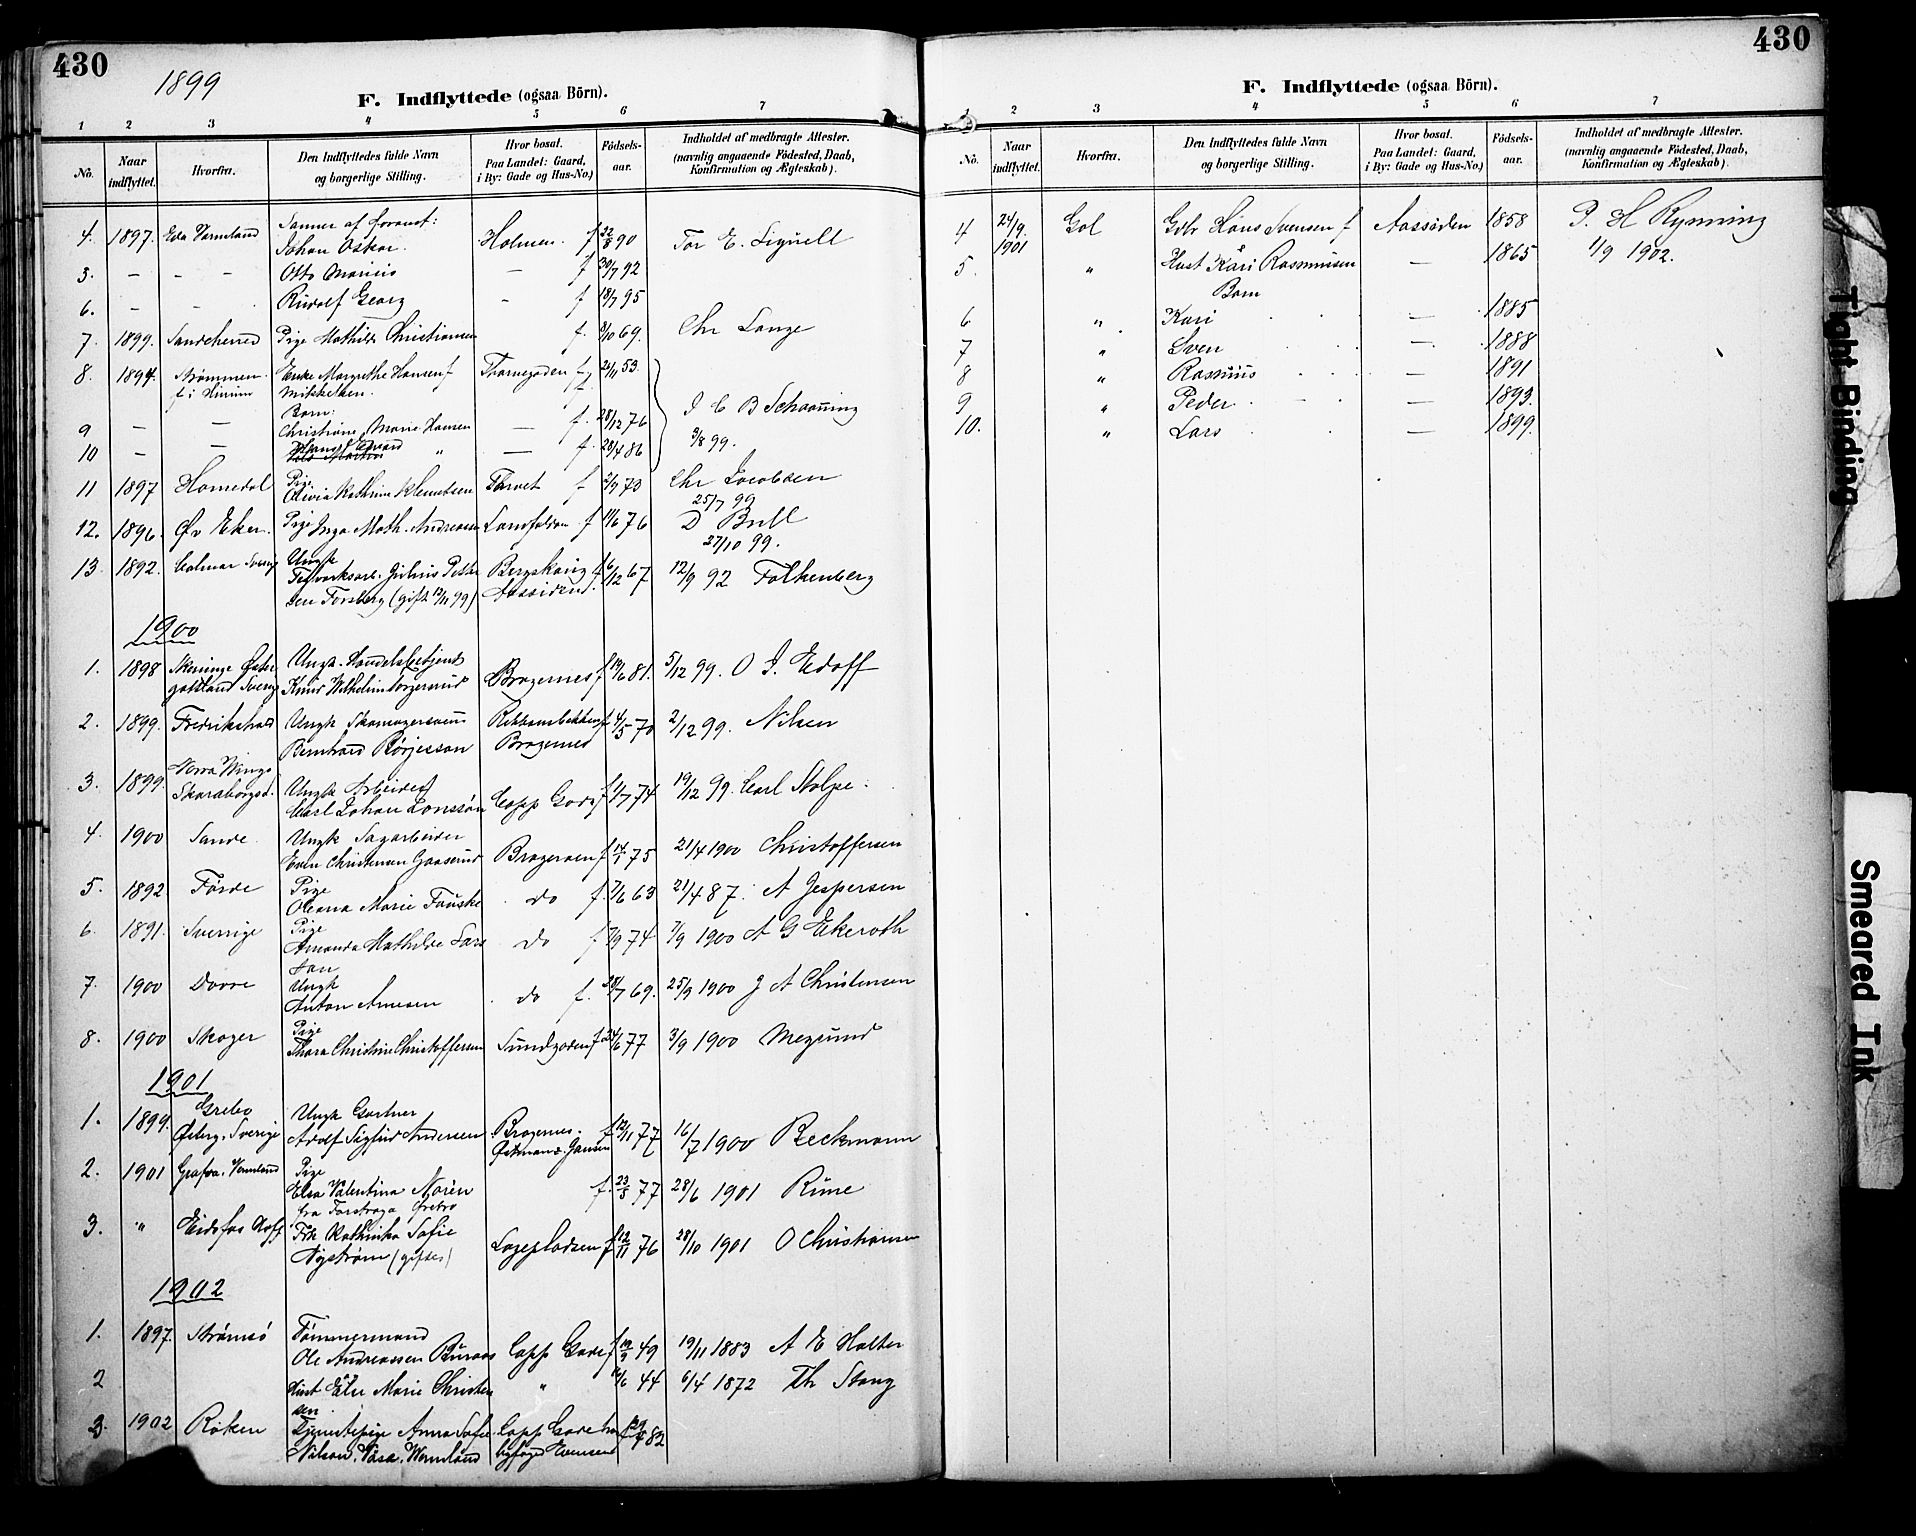 430
1899
F. Indflyttede (ogsaa Börn).
1 2 3 4 5 6 7
No. Naar indflyttet. Hvorfra. Den Indflyttedes fulde Navn og borgerlige Stilling. Hvor bosat. Paa Landet: Gaard, i By: Gade og Hus-No.) Födsels-aar. Indholdet af medbragte Attester. (navnlig angaaende Födested, Daab, Konfirmation og Ægteskab).
4. 1897. Eda Vermland Sønner af foranst:
Johan Oskar. Holmen. f 90 Tor E. Lignell
3. — — Otto Marius — f 30/7 92
6. — — Rudolf Georg - f 18/7 95
7. 1899. Sandeherred Pige Mathilde Christiansen f. 3/10 69. Chr Lange
8. 1894. Strømmen Enke Margrethe Hansen f Thornegaden f 53.
f i Hurum Mikkelsen.
Born:
9 — — Christiane Marie Hansen — f. 28/12 76 J C B Schaanning
10 — — Edvard " — f. 28/4 86 3/8 99.
11 1897 Homedal Pige
Olivia Kathrine Klemetsen Torvet f 2/9 73 Chr Jacobsen
25/7 99
12. 1896. Øv Eker. Pige Inga Math. Andreasen Landfalden f 11/6 76 D Bull
27/10 99.
13. 1892. Calmar Sverig Ungk
Teglverksarb. Julius Petter Bergskaug f 6/12 67 12/9 92 Falkenberg
sen Forsberg (gift 12/11 99) Aassiden.
1900
1. 1898 Skeninge Øster Ungk. Handelsbetjent
gøtland Sverig Knud Wilhelm Bragernes f 19/6 81. 5/12 99. O J. Edoff
2. 1899. Fredrikshald Ungk Skomagersvend f 4/5 70 2/12 99. Nilsen
Bernhard Børjesson Bragernes
3. 1899. Norra Wings
Skaraborgsl. Ungk Arbeider
Carl Johan Lonsson Capp Gade f 1/7 74 19/12 99. Carl Stolpe.
4 1900 Sande. Ungk Sagarbeider
Even Christensen Gaaserud Bragernes f 75 21/4 1900 Christoffersen
5. 1892 Førde Pige
Oleana Marie Fauske do f. 7/6 63 21/4 87. A Jespersen
6. 1891. Sverrige Pige
Amanda Mathilde Lars do f 7/9 74. 7/9 1900 A G Ekeroth
son
7. 1900 Dovre Ungk
Anton Arnesen do f. 28/7 69. 25/9 1900 J A Christensen
8. 1900 Skoger Pige
Thora Christine Christoffersen Sundgaden f 24/6 77 3/9 1900 Megrund
1901
1. 1899. Grebo Ungk Gartner
Østerg. Sverige Adolf Sigfrid Andersen Bragernes. f 12/11 77 16/7 1900 Beckmann
2. 1901 Grafva. Vermland Pige
Elsa Valentina Noren f. 23/5 77 28/6 1901 Rune
fra Ørebro
3. " Eidsfos Hof Frk Kathinka Sofie
Nystrøm (giftes) Lagepladsen f 12/11 76 28/10 1901 O Christiansen
1902
1. 1897. Strømsø Tømmermand
Ole Andreassen Buraas Capp Gade f 49 19/11 1883 A E Holter
2 Hust Else Marie Christen " 44 6/4 1872 Th Stang
sen
3. 1902 Røken Tjenestepige Anna Sofie Capp Gade hos 82
Nilson. Vase. Wermland byfoged Evensen
430
F. Indflyttede (ogsaa Börn).
1 2 3 4 5 6 7
No. Naar indflyttet. Hvorfra. Den Indflyttedes fulde Navn og borgerlige Stilling. Hvor bosat. Paa Landet: Gaard, i By: Gade og Hus-No.) Födsels-aar. Indholdet af medbragte Attester. (navnlig angaaende Födested, Daab, Konfirmation og Ægteskab).
4 24/9. 1901 Gol Gdbr Hans Svensen f Aassiden 1858 P. H Rynning
5. " Hust Kari Rasmusen — 1865 1/9 1902.
Born
6 " Kari — 1885
7 " Sven — 1888
8 " Rasmus — 1891
9 " Peder — 1893.
10. " Lars — 1899.
Tight Binding
Smeared Ink